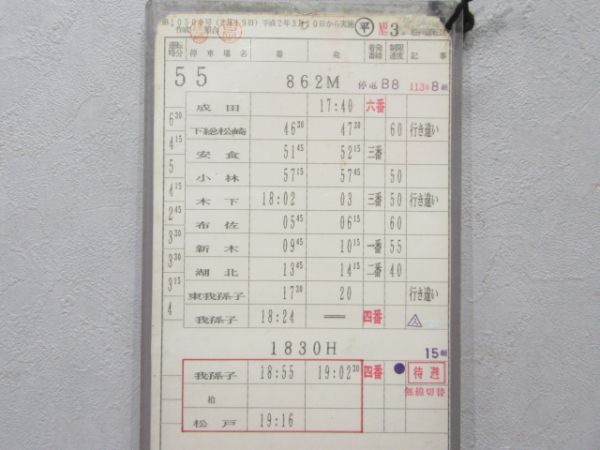 平成2年3月10日から実施 平 № 3
運転時分 停車場名 着 発 着発番線 制限速度 記事
55 862M 停電 B8 113系 8両
成田 17:40 六番
6 30
下総松崎 46 30 47 30 60 行き違い
4 15
安食 51 45 52 15 三番
5
小林 57 15 57 45 50
4 15
木下 18:02 03 三番 50 行き違い
2 45
布佐 05 45 06 15 60
3 30
新木 09 45 10 15 一番 55
3 30
湖北 13 45 14 15 二番 40
3 15
東我孫子 17 30 20 行き違い
4
我孫子 18:24 — 四番
1830H 15両
我孫子 18:55 19:02 30 四番 ● 待避
柏 無線切替
松戸 19:16